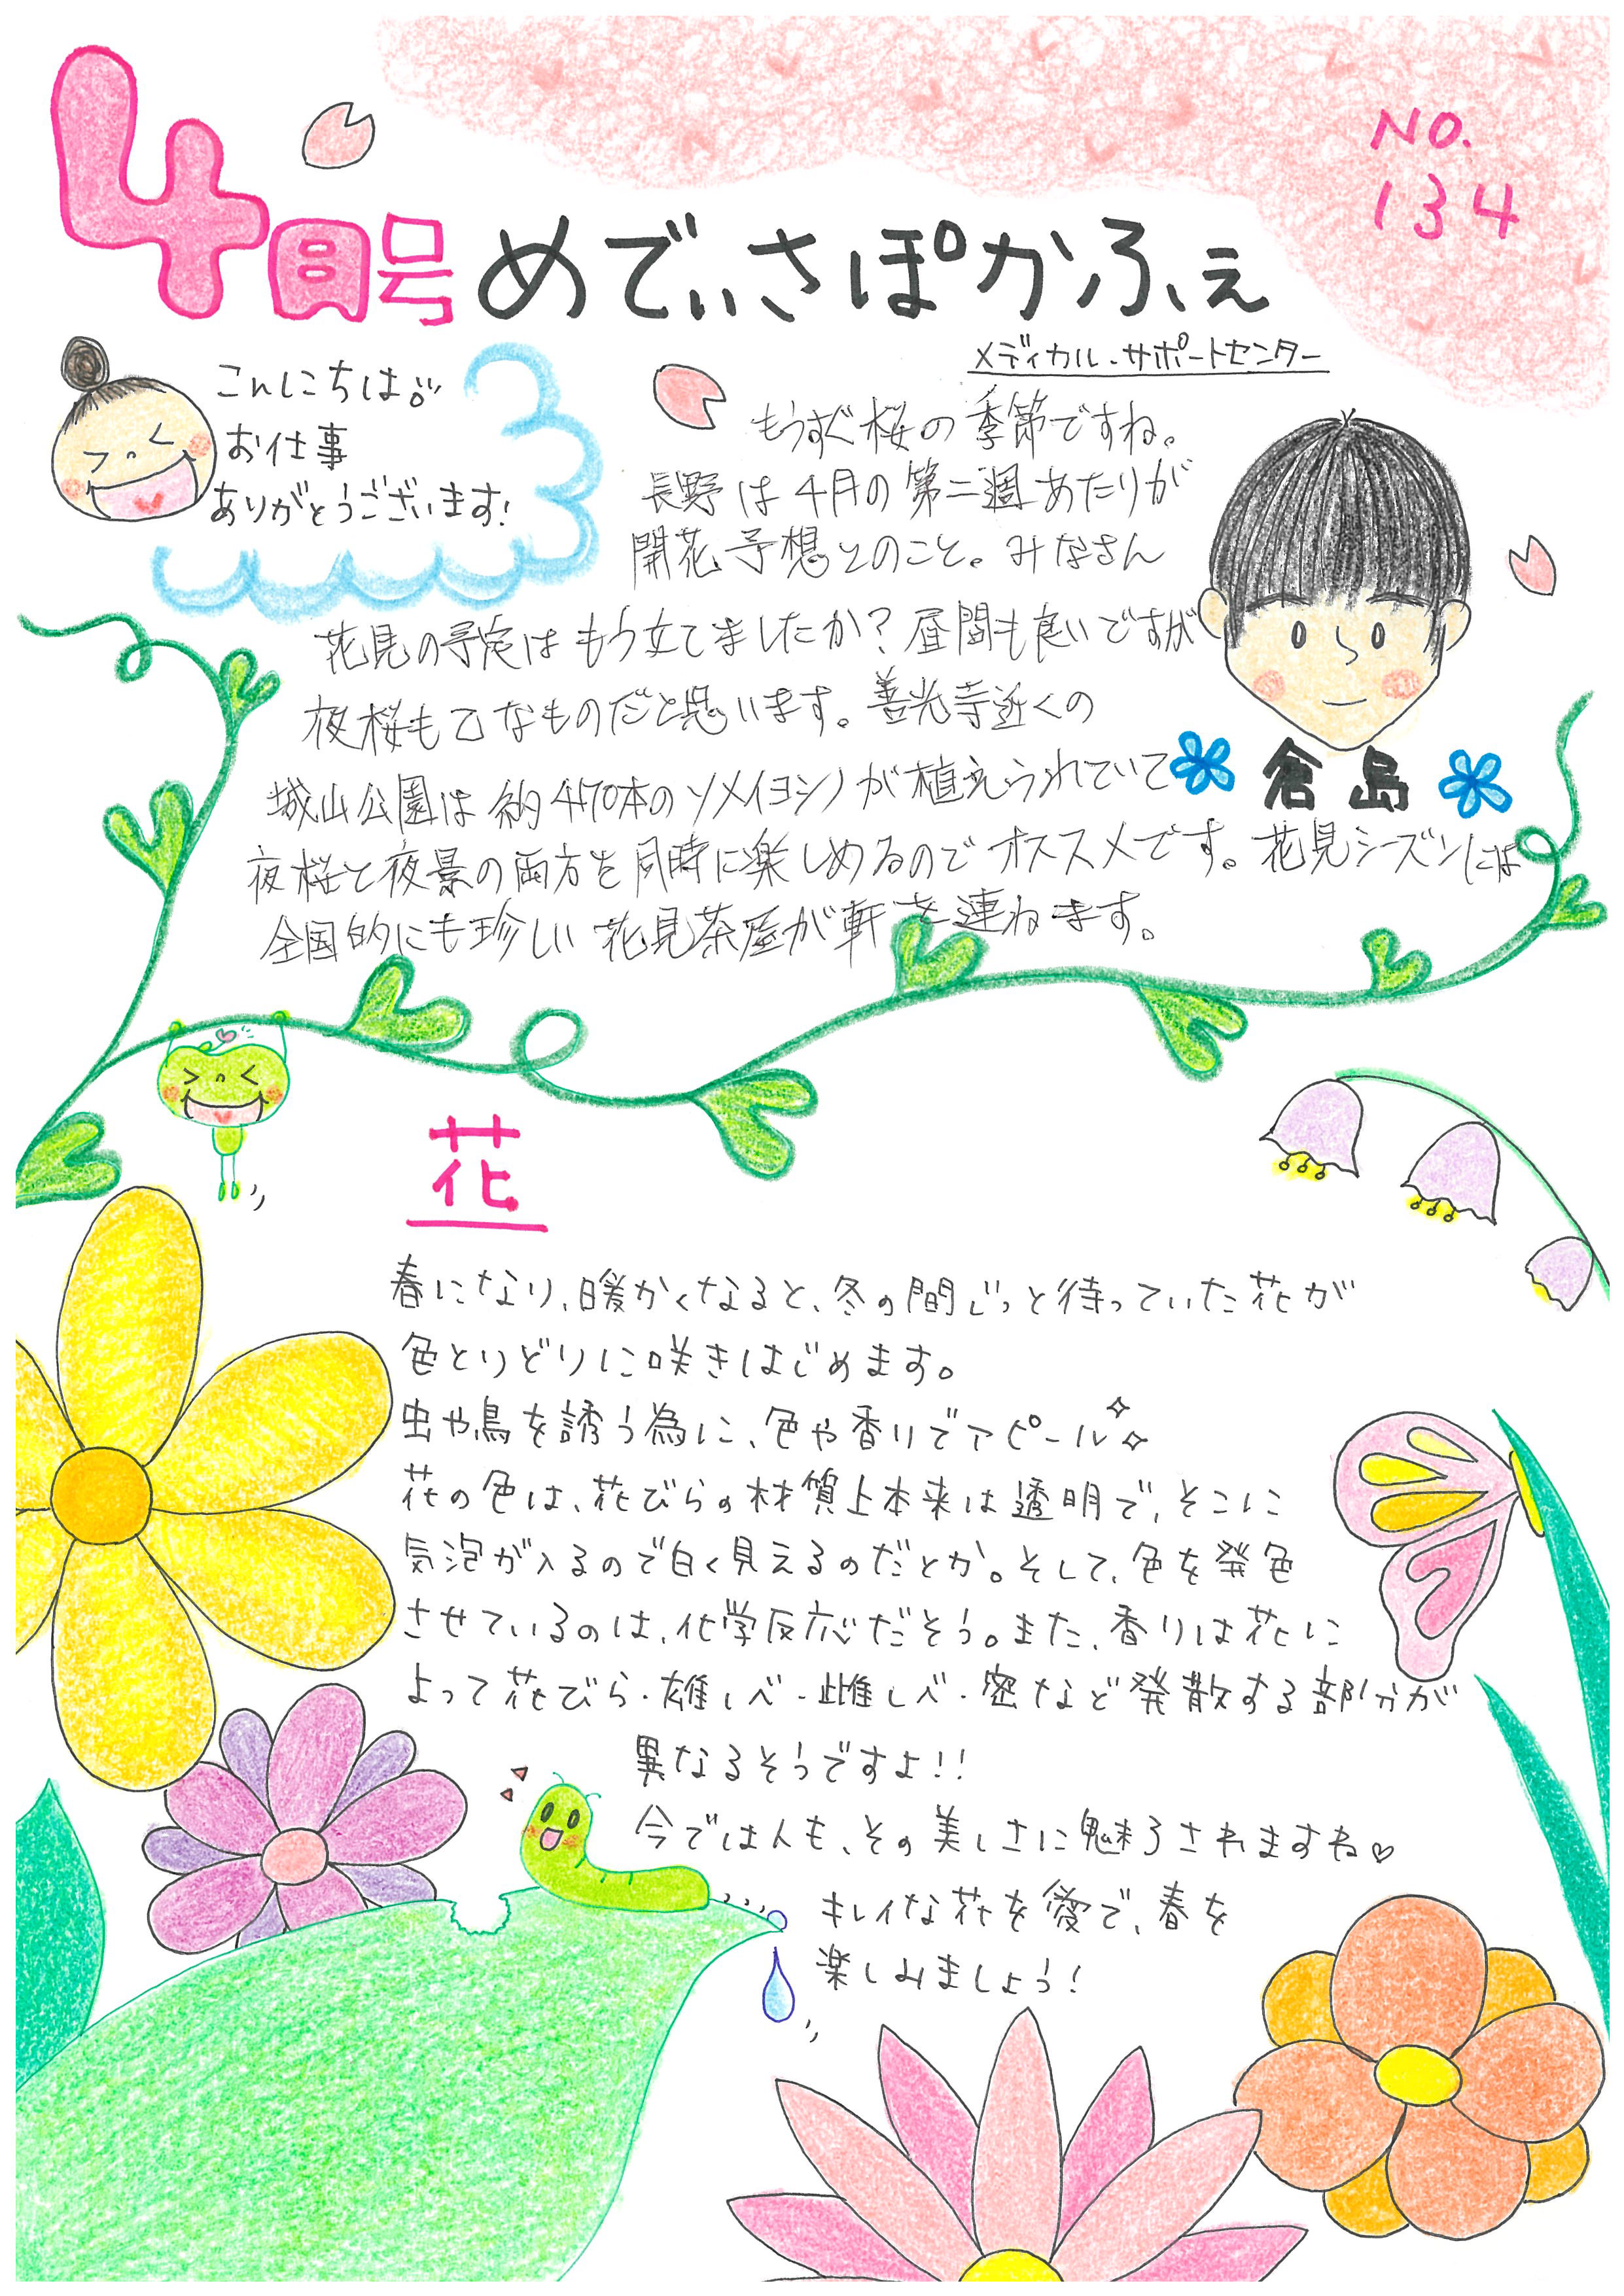 NO.
134
4月号 めでぃさぽかふぇ
メディカル・サポートセンター
こんにちは。
お仕事
ありがとうございます!
もうすぐ桜の季節ですね。
長野は4月の第二週あたりが
開花予想とのこと。みなさん
花見の予定はもう立てましたか?昼間も良いですが
夜桜も乙なものだと思います。善光寺近くの
城山公園は約470本のソメイヨシノが植えられていて
夜桜と夜景の両方を同時に楽しめるのでオススメです。花見シーズンには
全国的にも珍しい花見茶屋が軒を連ねます。
倉島
花
春になり、暖かくなると、冬の間じっと待っていた花が
色とりどりに咲きはじめます。
虫や鳥を誘う為に、色や香りでアピール
花の色は、花びらの材質上本来は透明で、そこに
気泡が入るので白く見えるのだとか。そして、色を発色
させているのは、化学反応だそう。また、香りは花に
よって花びら・雄しべ・雌しべ・密など発散する部分が
異なるそうですよ!!
今では人も、その美しさに魅了されますね♡
キレイな花を愛で、春を
楽しみましょう!